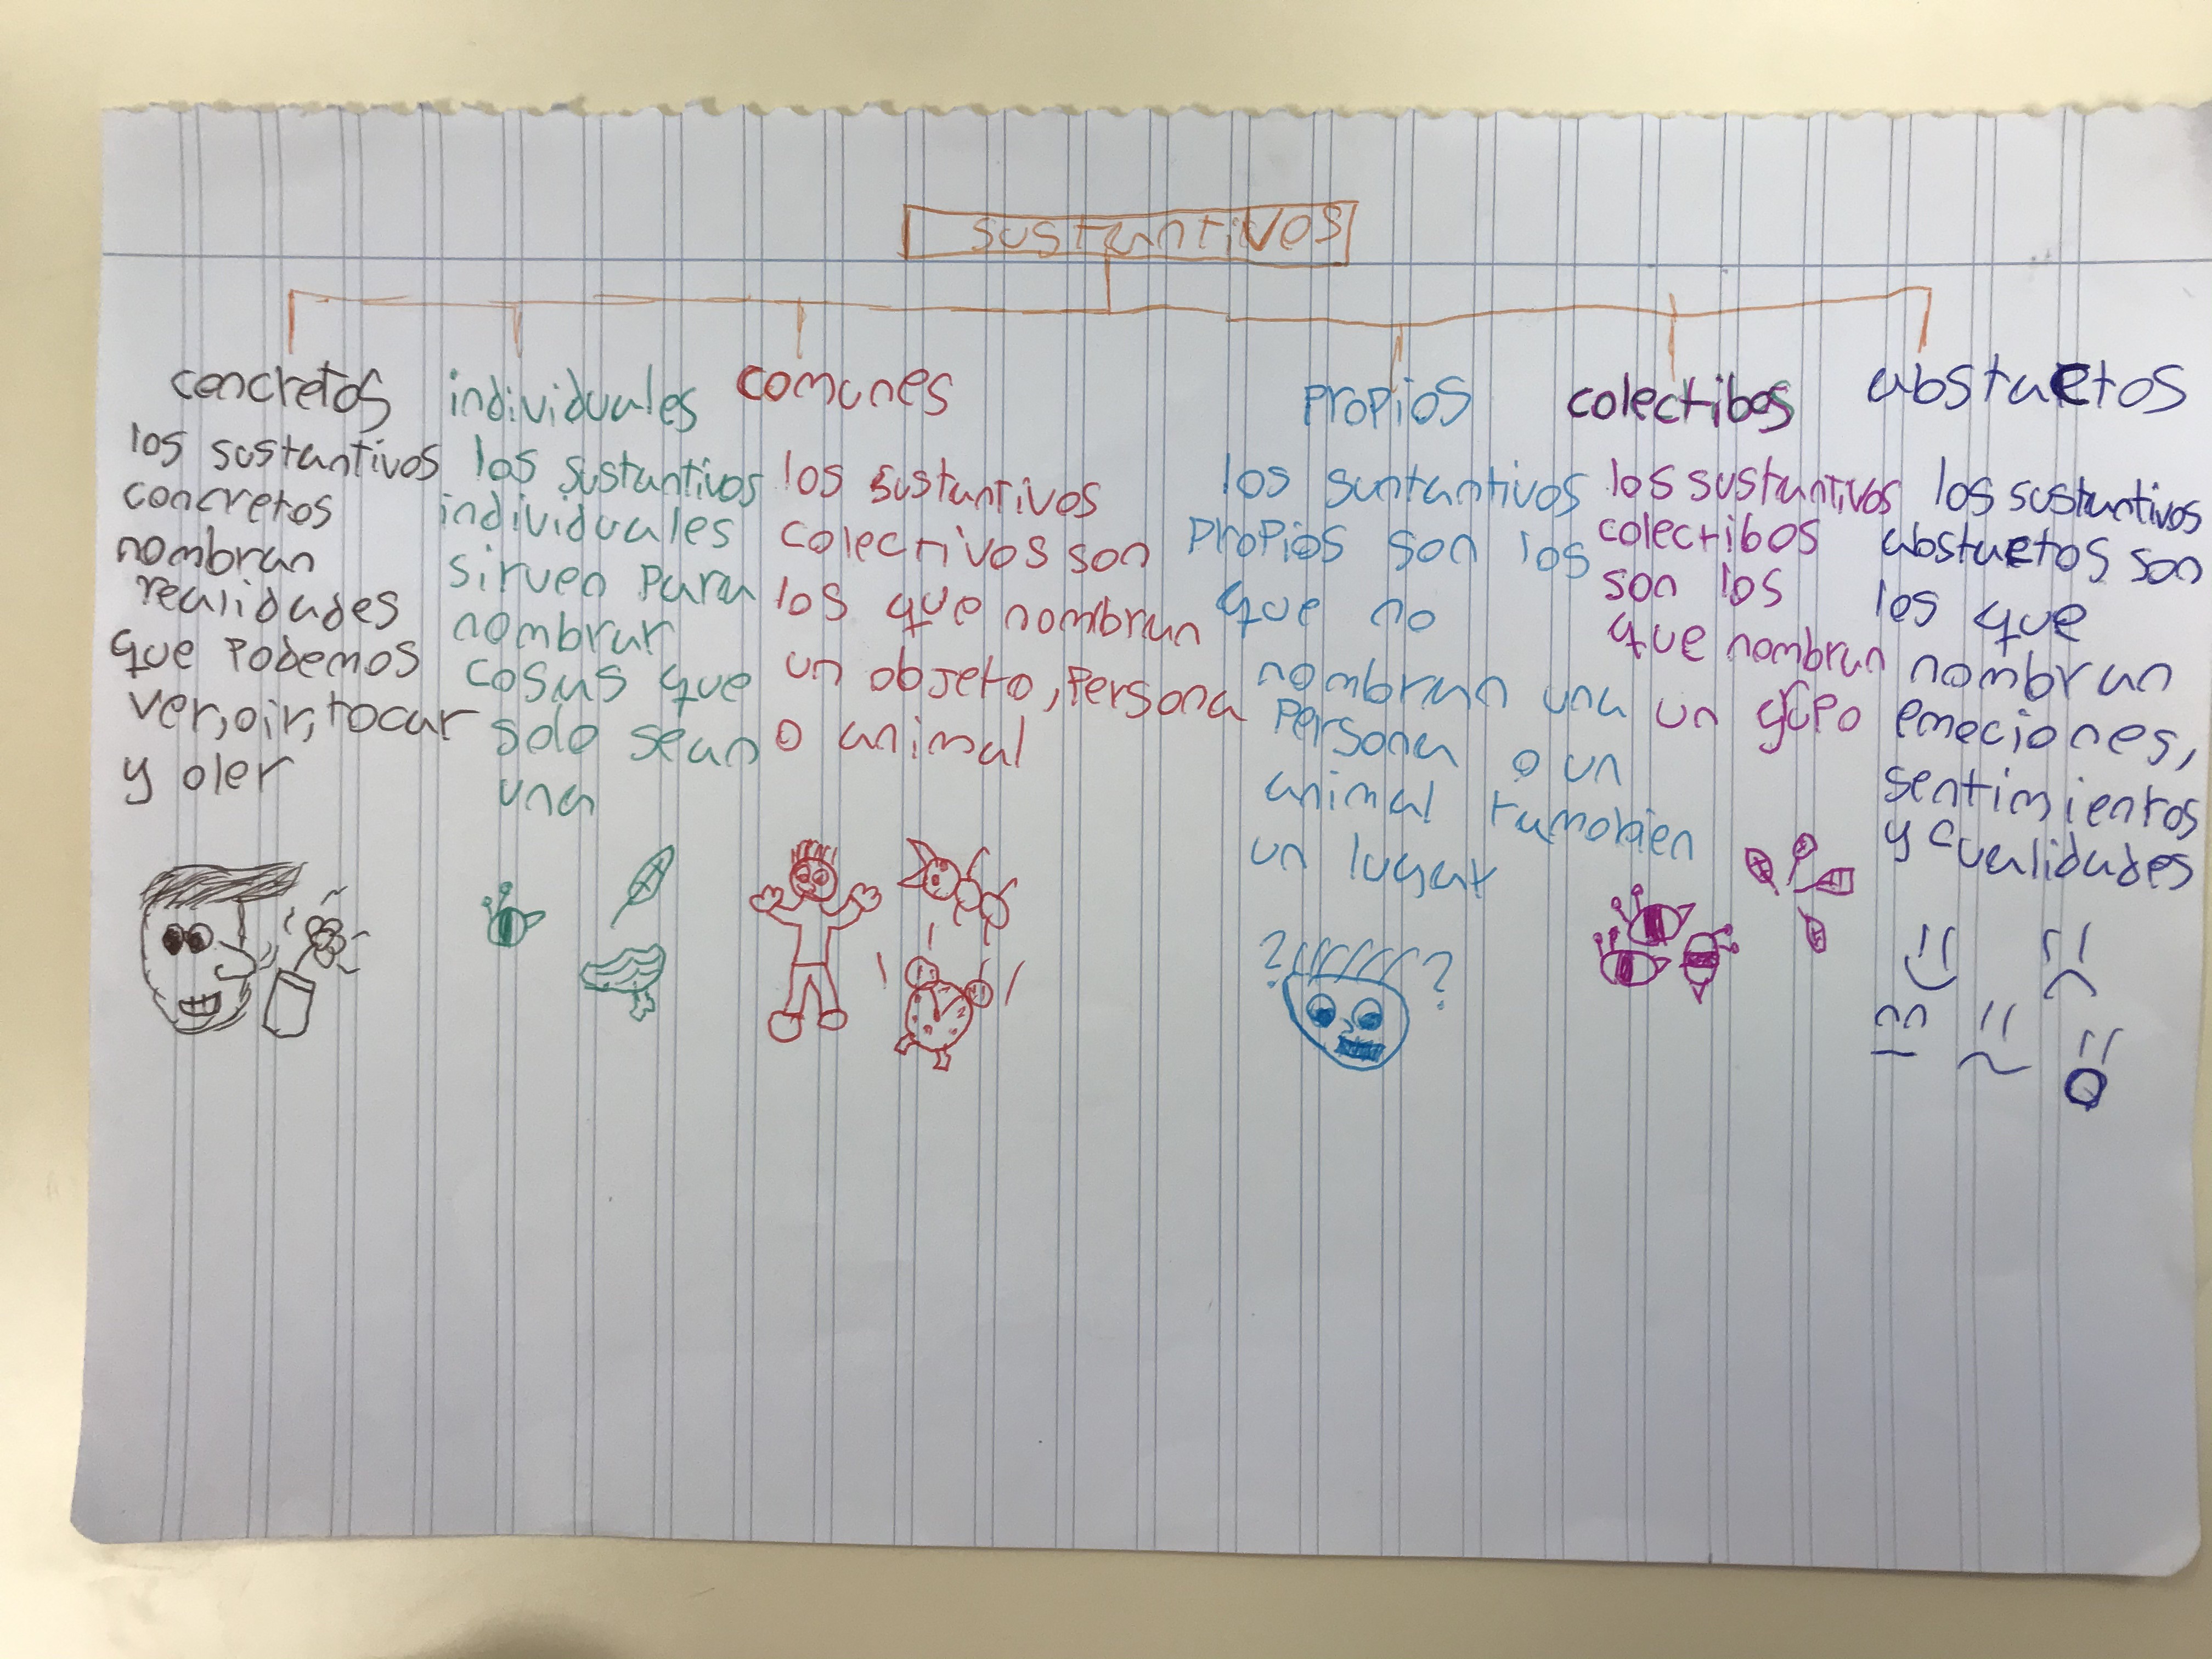 sustantivos
concretos
los sustantivos
concretos
nombran
realidades
que Podemos
ver, oir, tocar
y oler
individuales
los sustantivos
individuales
sirven para
nombrar
cosas que
solo sean
una
comunes
los sustantivos
colectivos son
los que nombran
un objeto, Persona
o animal
Propios
los suntantivos
Propios son los
que no
nombran una
Persona o un
animal tamobien
un lugar
colectibos
los sustantivos
colectibos
son los
que nombran
un grupo
abstactos
los sustantivos
abstactos son
los que
nombran
emociones,
sentimientos
y cualidades
? ?